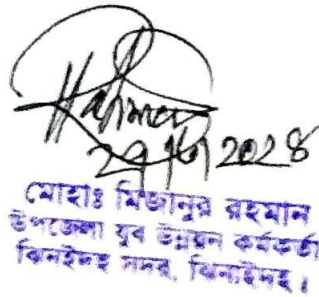 Rahman
মোহাঃ মিজানুর রহমান
উপজেলা যুব উন্নয়ন কর্মকর্তা
ঝিনাইদহ সদর, ঝিনাইদহ।